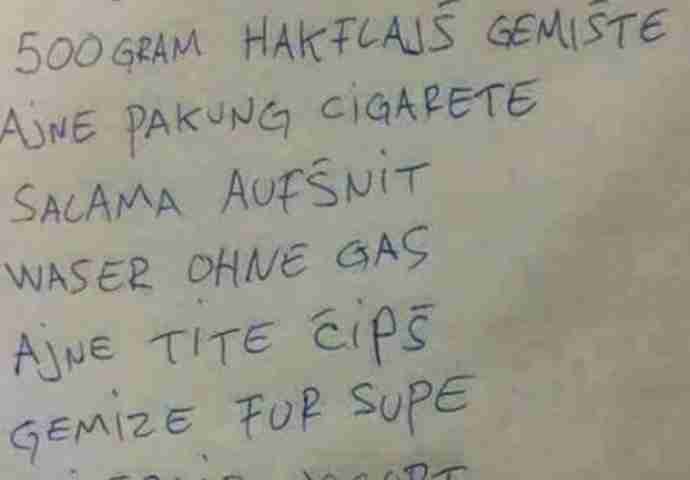 500 GRAM HAKFLAJŠ GEMIŠTE
AJNE PAKUNG CIGARETE
SALAMA AUFŠNIT
WASER OHNE GAS
AJNE TITE ČIPŠ
GEMIZE FUR SUPE